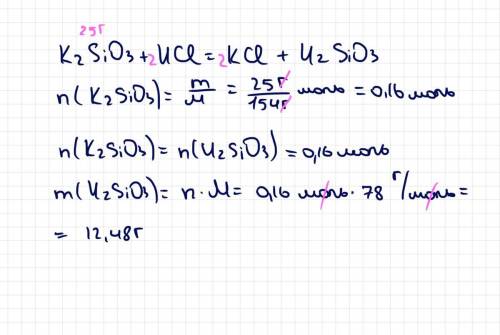 25г
K₂SiO₃ + 2HCl = 2KCl + H₂SiO₃
n(K₂SiO₃) = m/M = 25г/154г моль = 0,16 моль
n(K₂SiO₃) = n(H₂SiO₃) = 0,16 моль
m(H₂SiO₃) = n · M = 0,16 моль · 78 г/моль =
= 12,48г